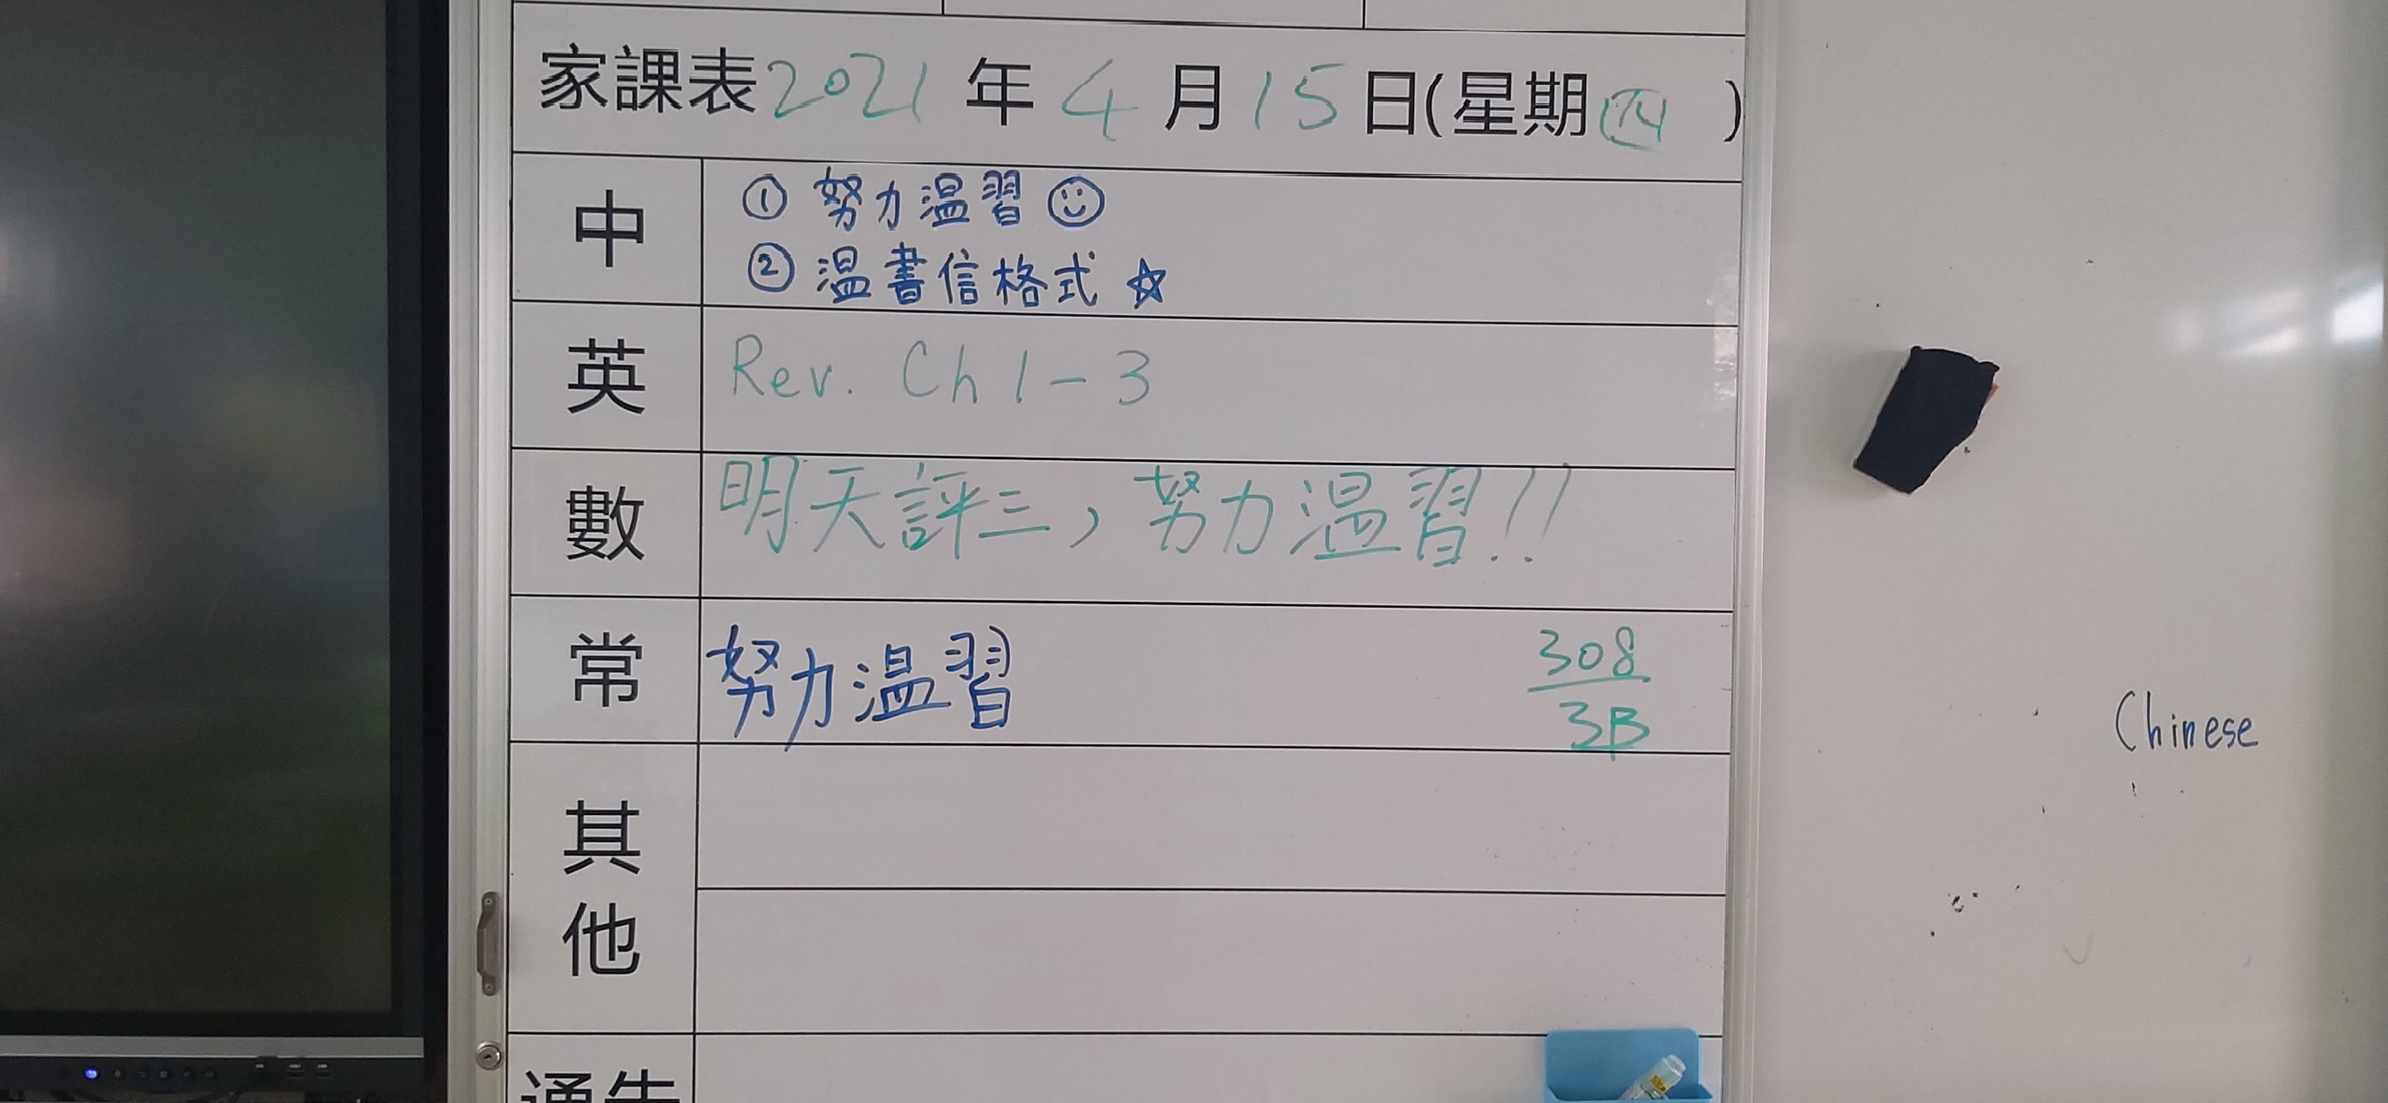 家課表2021年4月15日(星期四)
中
① 努力温習
② 温書信格式 ☆
英
Rev. Ch 1-3
數
明天評三，努力温習!!
常
努力温習
308
3B
其他
通告
Chinese